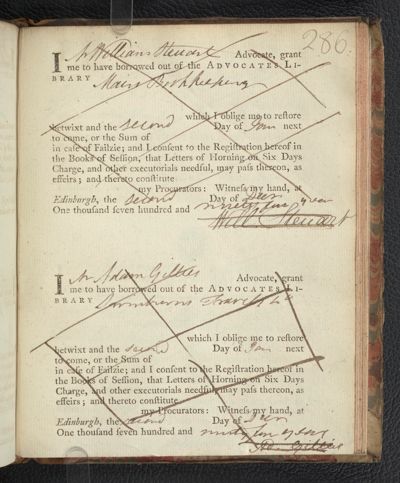 286.
I Mr William Steuart Advocate, grant
me to have borrowed out of the ADVOCATES LI-
BRARY
Mairs Bookkeeping
which I oblige me to reſtore
betwixt and the second Day of Jan next
to come, or the Sum of
in caſe of Failzie; and I conſent to the Regiſtration hereof in
the Books of Seſſion, that Letters of Horning on Six Days
Charge, and other executorials needful, may paſs thereon, as
effeirs; and thereto conſtitute
my Procurators: Witneſs my hand, at
Edinburgh, the second Day of Decr
One thouſand ſeven hundred and ninety two years
Will Steuart
I Mr Adam Gillies Advocate, grant
me to have borrowed out of the ADVOCATES LI-
BRARY
Travels
which I oblige me to reſtore
betwixt and the second Day of Jan next
to come, or the Sum of
in caſe of Failzie; and I conſent to the Regiſtration hereof in
the Books of Seſſion, that Letters of Horning on Six Days
Charge, and other executorials needful, may paſs thereon, as
effeirs; and thereto conſtitute
my Procurators: Witneſs my hand, at
Edinburgh, the second Day of Decr
One thouſand ſeven hundred and ninety two years
Ad. Gillies